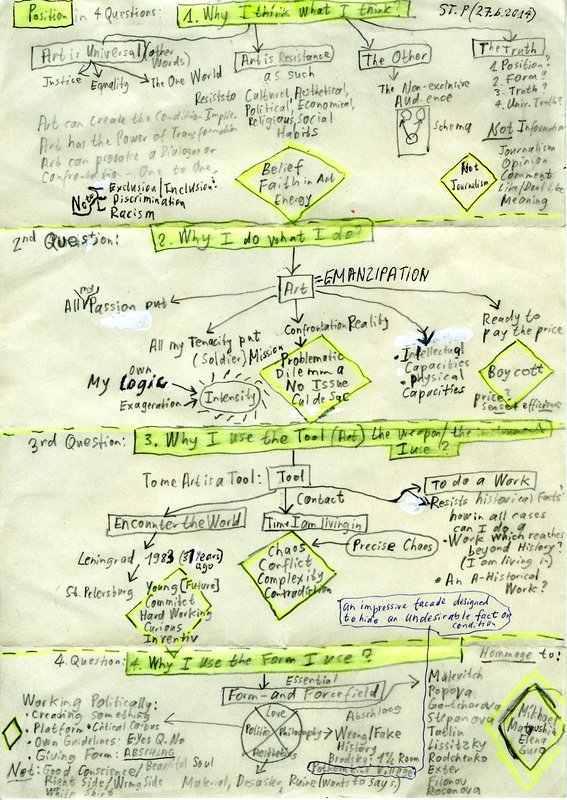 Position in 4 Questions: 1. Why I think what I think? ST. P (27.6.2014)
Art is Universal (other Words)
Justice Equality The One World
Art is Resistance as such
Resists to Cultural, Aesthetical,
Political, Economical,
Religious, Social
Habits
The Other
The Non-exclusive
Audience
Schema
The Truth
1. Position?
2. Form?
3. Truth?
4. Univ. Truth?
Not Information
Journalism
Opinion
Comment
Like/Dont Like
Meaning
Not
Journalism
Art can Create the Condition Implic.
Art has the Power of Transformation
Art can provoke a Dialogue or
Confrontation - One to One.
Not to Exclusion/Inclusion?
Discrimination
Racism
Belief
Faith in Art
Energy
2nd Question: 2. Why I do what I do?
Art = EMANZIPATION
All my Passion put
All my Tenacity put
(Soldier) Mission
My own Logic
Exageration
Intensity
Confrontation Reality
Problematic
Dilemma
No Issue
Cul de Sac
• Intellectual
Capacities
• Physical
Capacities
Ready to
pay the price
Boycott
price?
efficience
3rd Question: 3. Why I use the Tool (Art) the weapon/the instrument
I use?
To me Art is a Tool: Tool
Contact
Encounter the World
Leningrad 1983 (31 years) ago
St. Petersburg
Young [Future]
Commitet
Hard Working
Curious
Inventiv
Time I am living in
Precise Chaos
Chaos
Conflict
Complexity
Contradiction
To do a Work
• Resists historical Facts
how in all cases
can I do a
• Work which reaches
beyond History?
(I am living in)
• An A-Historical
Work?
An impressive facade designed
to hide an Undesirable fact or
condition
4. Question: 4. Why I use the Form I use?
Essential
Form- and Forcefield
Love
Politic Philosophy
Aesthetics
Working Politically:
• Creading something
• Platform • Critical Corpus
• Own Guidelines: E Yes Q. No
• Giving Form: ABSCHLAG
Not: Good Conscience/Beautiful Soul
Right side/Wrong Side
White Shirt
Abschlag
Wrong/Fake
History
Brodsky 1½ Room
Pothemkine Village
Material, Desaster, Ruine (Wants to Say),
Hommage to:
Malevitch
Popova
Gontcharova
Stepanova
Tatlin
Lissitzky
Rodchenko
Exter
Filonov
Rosanova
Mikhael
Matyushin
Elena
Guro